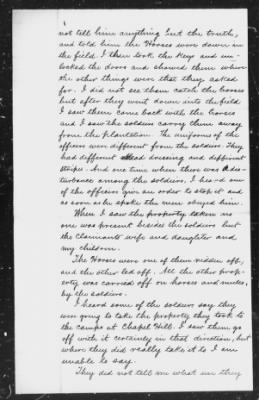 not tell him anything but the truth,
and told him the Horses were down in
the field I then took the keys and un-
locked the doors and showed them where
the other things were that they asked
for. I did not see them catch the horses
but after they went down into the field
I saw them come back with the horses
and I saw the soldiers carry them away
from the plantation. The uniforms of the
officers were different from the soldiers. They
had different dressing and different
stripes. And one time when there was dis-
turbance among the soldiers, I heard one
of the officers give an order to stop it and
as soon as he spoke the men obeyed him.
When I saw the property taken no
one was present besides the soldiers but
the Claimants wife and daughter and
my children.
The Horses were one of them ridden off,
and the other led off. All the other prop-
erty was carried off on horses and mules,
by the soldiers.
I heard some of the soldiers say they
were going to take the property they took to
the camps at Chapel Hill. I saw them go
off with it certainly in that direction, but
where they did really take it to I am
unable to say.
They did not tell me what use they